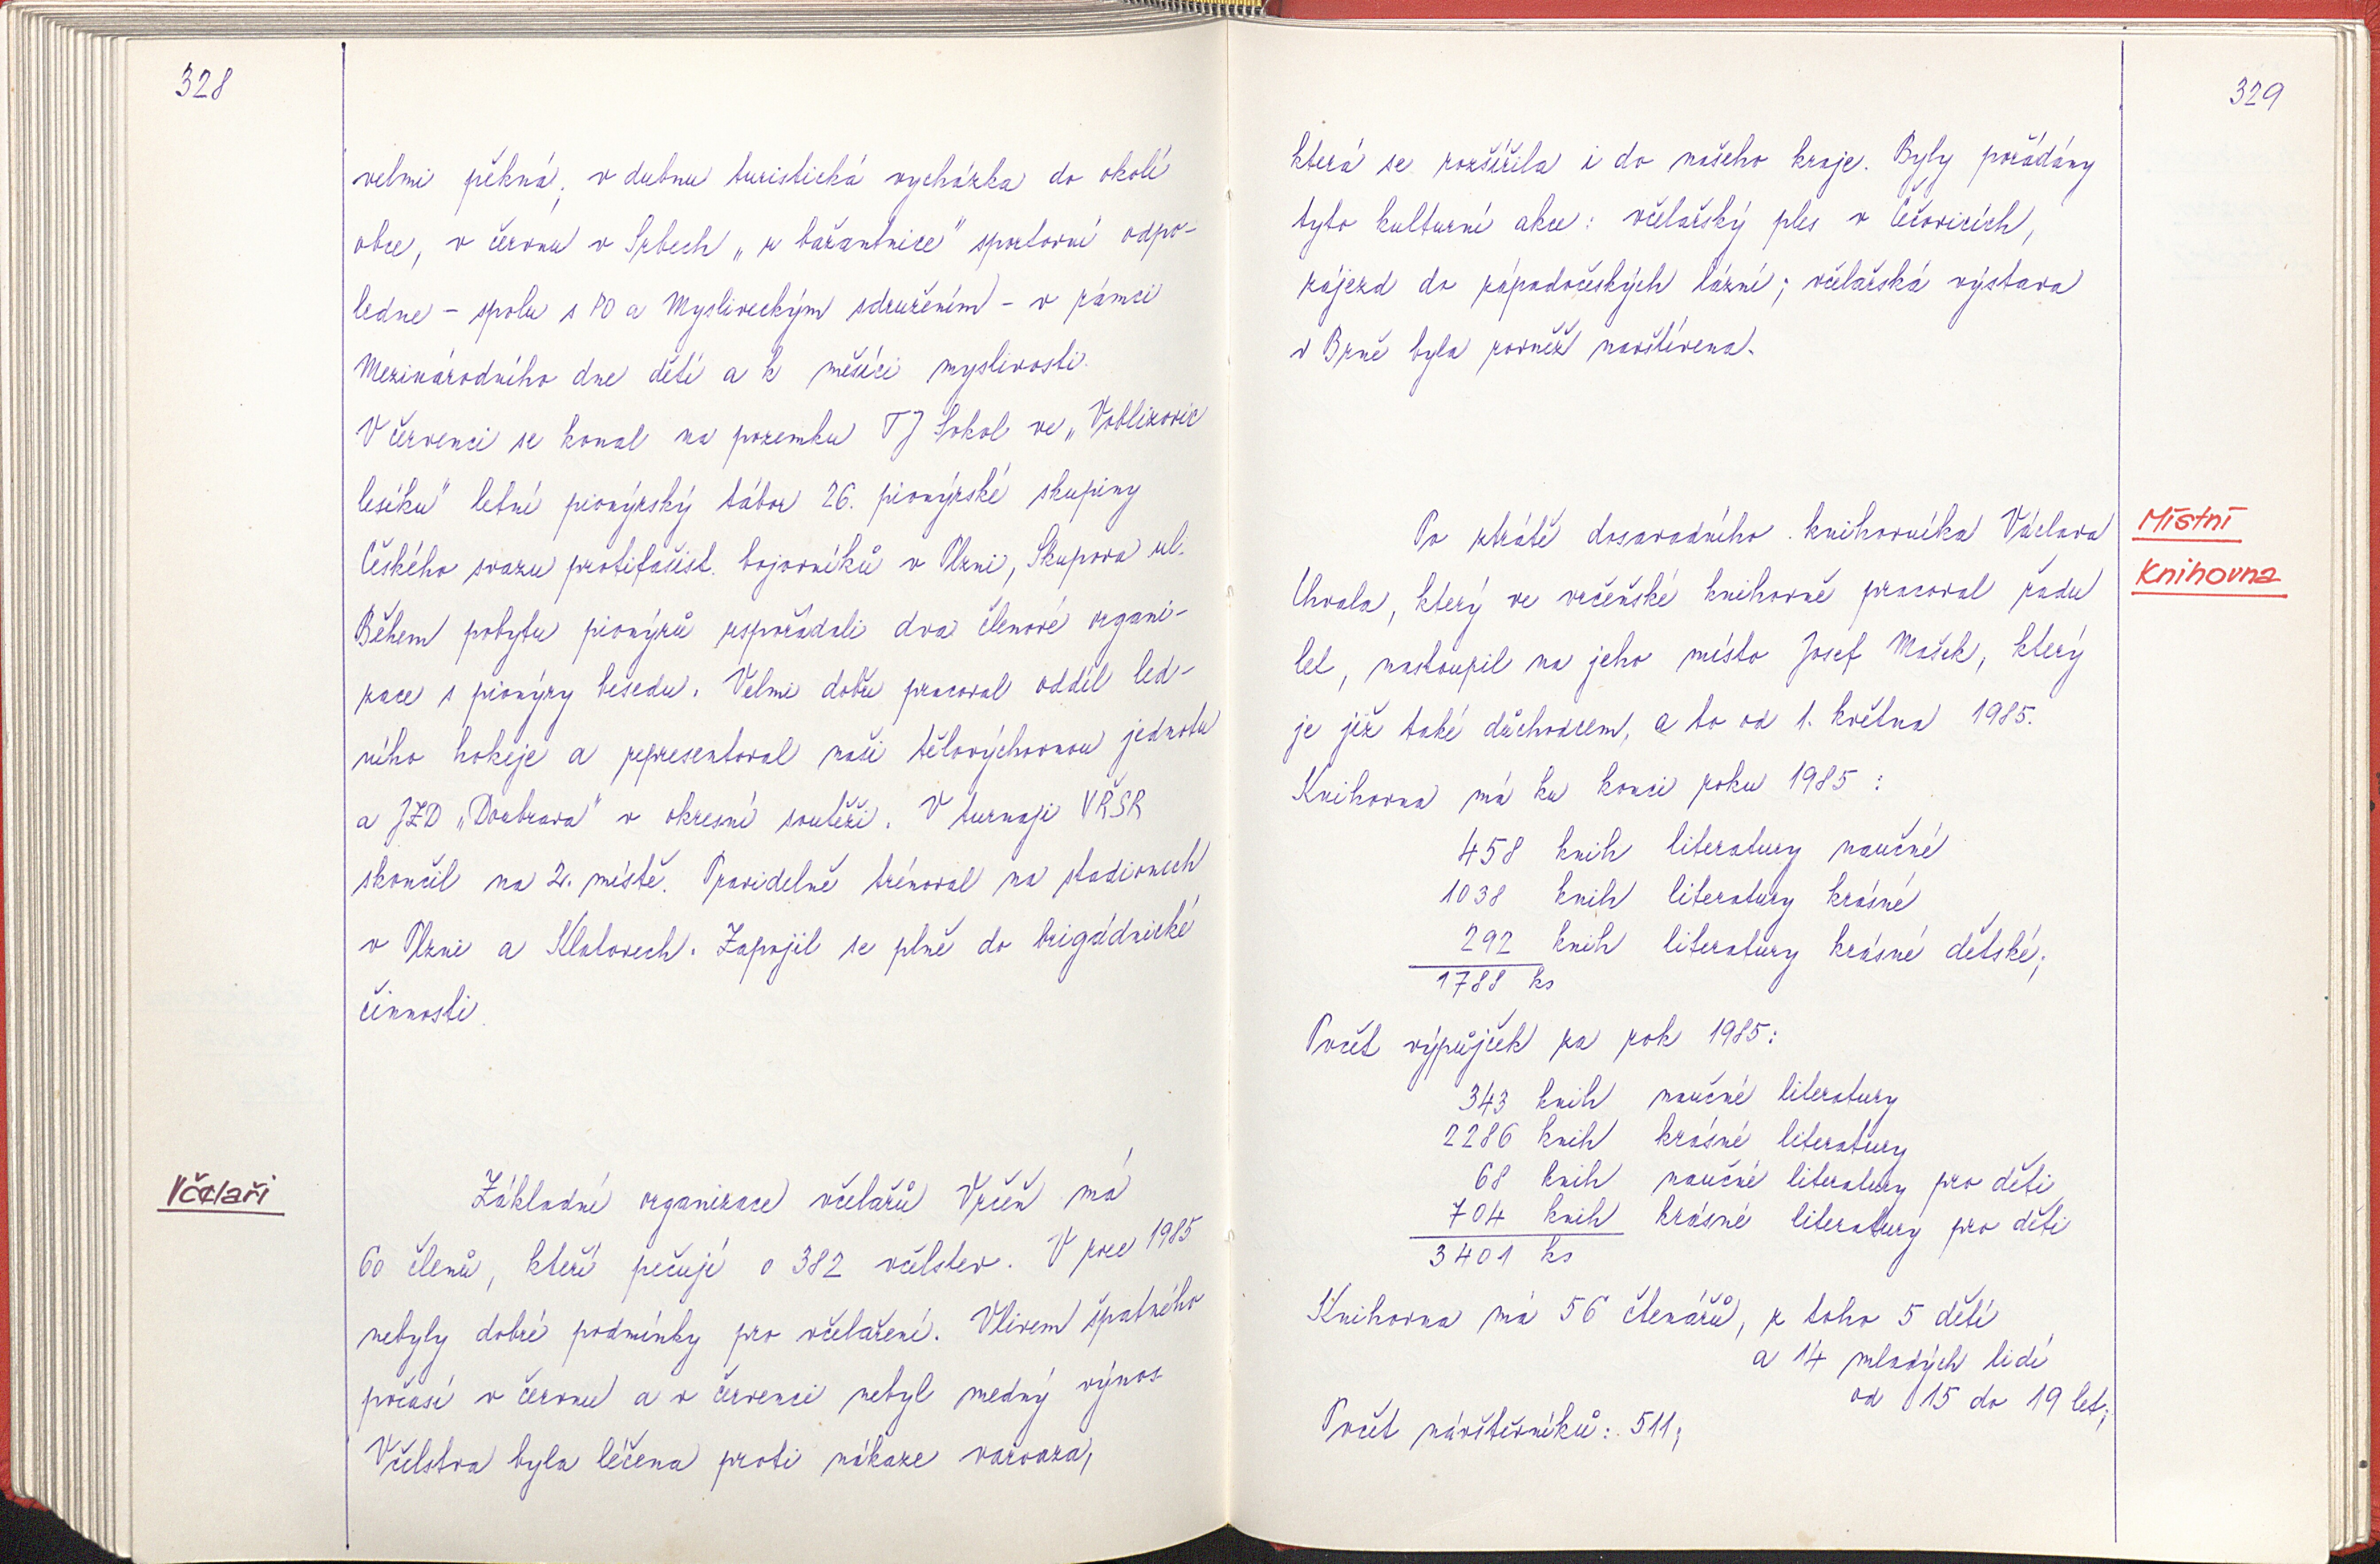 328
velmi pěkná; v dubnu turistická vycházka do okolí
obce, v červnu v Srbech „u bažantnice" sportovní odpo-
ledne - spolu s PO a Mysliveckým sdružením - v rámci
Mezinárodního dne dětí a k měsíci myslivosti.
V červenci se konal na pozemku TJ Sokol ve „Voblizovic
lesíku" letní pionýrský tábor 26. pionýrské skupiny
Českého svazu protifašist. bojovníků v Plzni, Skupova ul.
Během pobytu pionýrů uspořádali dva členové organi-
zace s pionýry besedu. Velmi dobře pracoval oddíl led-
ního hokeje a representoval naši tělovýchovnou jednotu
a JZD „Doubrava" v okresní soutěži. V turnaji VŘSR
skončil na 2. místě. Pravidelně trénoval na stadionech
v Plzni a Klatovech. Zapojil se plně do brigádnické
činnosti.
Včelaři
Základní organizace včelařů Vrčeň má
60 členů, kteří pečují o 382 včelstev. V roce 1985
nebyly dobré podmínky pro včelaření. Vlivem špatného
počasí v červnu a v červenci nebyl medný výnos.
Včelstva byla léčena proti nákaze varoaza,
329
která se rozšířila i do našeho kraje. Byly pořádány
tyto kulturní akce: včelařský ples v Čečovicích,
zájezd do západočeských lázní; včelařská výstava
v Brně byla rovněž navštívena.
Místní
Knihovna
Po ztrátě dosavadního knihovníka Václava
Chvala, který ve vrčeňské knihovně pracoval řadu
let, nastoupil na jeho místo Josef Mašek, který
je již také důchodcem, a to od 1. května 1985.
Knihovna má ku konci roku 1985:
458 knih literatury naučné
1038 knih literatury krásné
292 knih literatury krásné dětské;
1788 ks
Počet výpůjček za rok 1985:
343 knih naučné literatury
2286 knih krásné literatury
68 knih naučné literatury pro děti
704 knih krásné literatury pro děti
3401 ks
Knihovna má 56 čtenářů, z toho 5 dětí
a 14 mladých lidí
od 15 do 19 let;
Počet návštěvníků: 511;